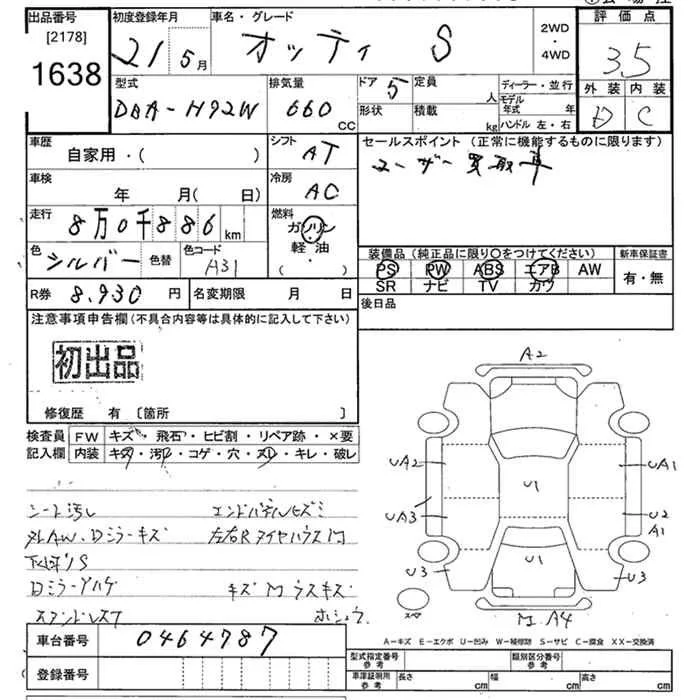 出品番号
[2178]
1638
初度登録年月
21 5月
車名・グレード
オッティ S
2WD
・
4WD
評価点
3.5
外装 内装
D C
型式
DBA-H92W
排気量
660 CC
ドア 5
形状
定員 人
積載 kg
ディーラー・並行
モデル年式 年
ハンドル 左・右
車歴
自家用・( )
シフト
AT
セールスポイント (正常に機能するものに限ります)
ユーザー買取車
車検
年 月(日)
冷房
AC
走行
8万0千886km
燃料
ガソリン
・
軽・油
( )
色
シルバー
色替
色コード
A31
装備品 (純正品に限り○をつけてください)
PS PW ABS エアB AW
SR ナビ TV カワ
新車保証書
有・無
R券 8.930 円
名変期限 月 日
後日品
注意事項申告欄 (不具合内容等は具体的に記入して下さい)
初出品
修復歴 有 〔箇所 〕
検査員
記入欄
FW キズ・飛石・ヒビ割・リペア跡・×要
内装 キズ・汚レ・コゲ・穴・スレ・キレ・破レ
シート汚し
エンドパネルヒズミ
外AW、Dミラーキズ
左右Rタイヤハウス
下廻りS
Dミラー
キズ ウスキズ
A2
UA2
UA1
U1
UA3
U2
A1
U1
U3
U3
A4
スペア
A-キズ E-エクボ U-凹み W-補修跡 S-サビ C-腐食 XX-交換済
車台番号
0464787
登録番号
型式指定番号
参考
類別区分番号
参考
車庫証明用
参考
長さ cm
幅 cm
高さ cm